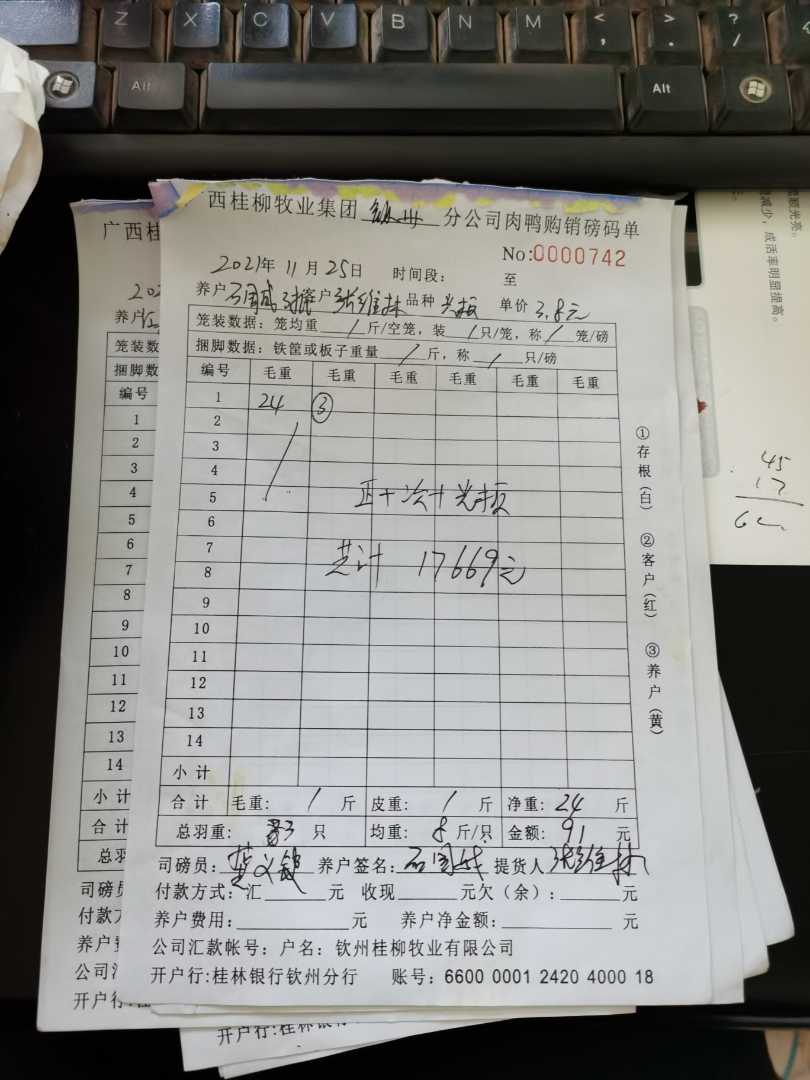 Z X C V B N M < , > . ? /
Alt Alt
西桂柳牧业集团 钦州 分公司肉鸭购销磅码单
No:0000742
2021年 11月 25日 时间段: 至
养户 客户 张维林 品种 光板 单价 3.8元
笼装数据: 笼均重 / 斤/空笼, 装 / 只/笼, 称 / 笼/磅
捆脚数据: 铁筐或板子重量 / 斤, 称 / 只/磅
编号 毛重 毛重 毛重 毛重 毛重 毛重
1 24 ③
2
3
4
5 正+次+光板
6
7 共计 17669元
8
9
10
11
12
13
14
小计
合计 毛重: / 斤 皮重: / 斤 净重: 24 斤
总羽重: 3 只 均重: 8 斤/只 金额: 91 元
司磅员: 养户签名: 提货人 张维林
付款方式: 汇 元 收现 元欠(余): 元
养户费用: 元 养户净金额: 元
公司汇款帐号: 户名: 钦州桂柳牧业有限公司
开户行:桂林银行钦州分行 账号: 6600 0001 2420 4000 18
①存根(白) ②客户(红) ③养户(黄)
广西桂
202
养户
笼装数
捆脚数
编号
1
2
3
4
5
6
7
8
9
10
11
12
13
14
小计
合计
总羽
司磅员
付款方
养户费
公司汇
开户行:桂
开户行:桂林银行
减少, 成活率明显提高。
45
17